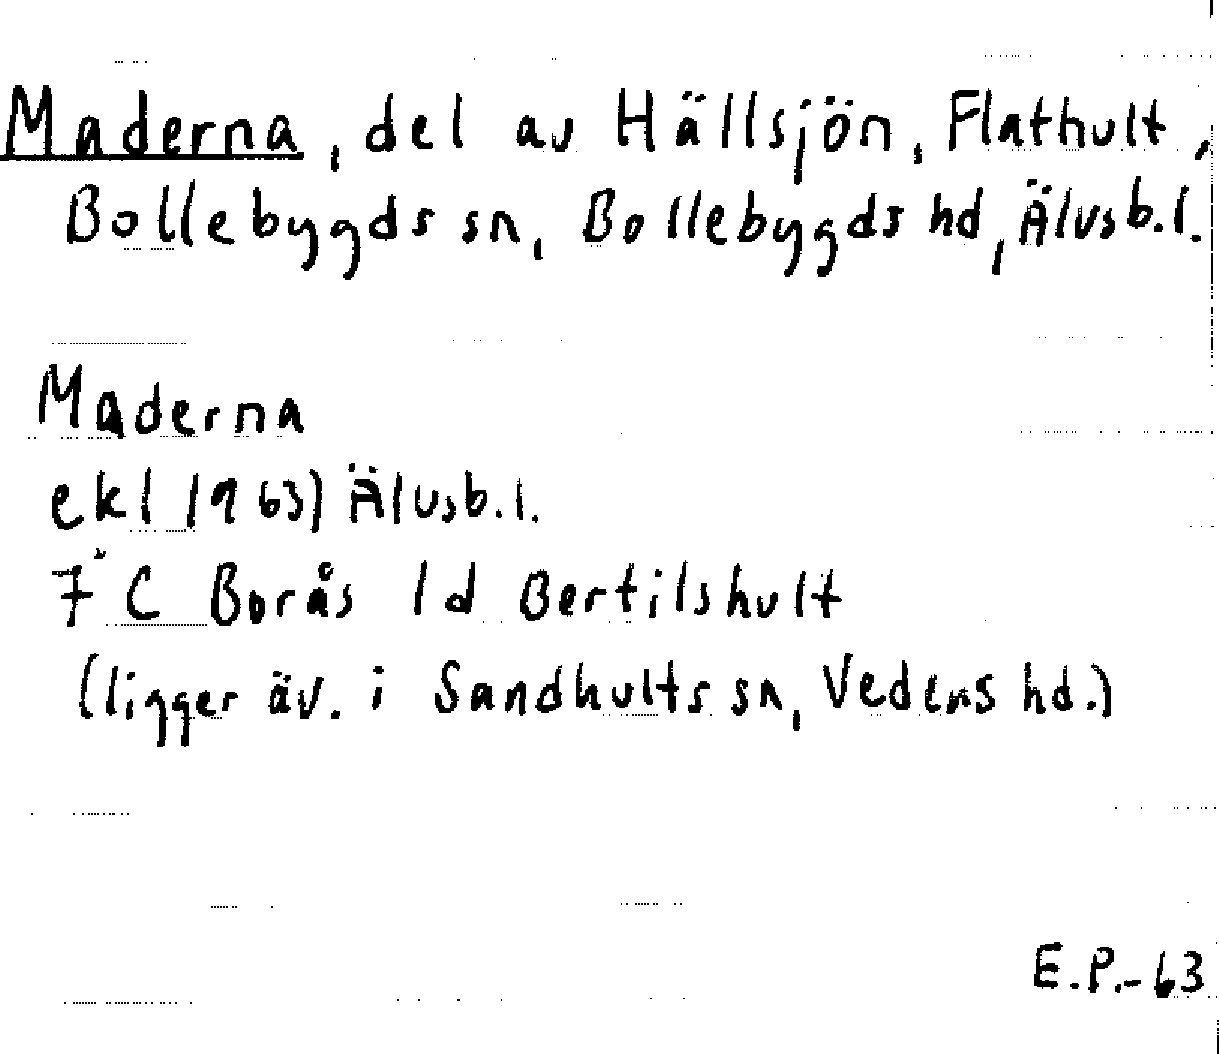 Maderna, del av Hällsjön, Flathult,
Bollebygds sn, Bollebygds hd, Älvsb.l.
Maderna
ekl 1963) Älvsb.l.
7 C Borås 1d Bertilshult
(ligger äv. i Sandhults sn, Vedens hd.)
E.P.-63